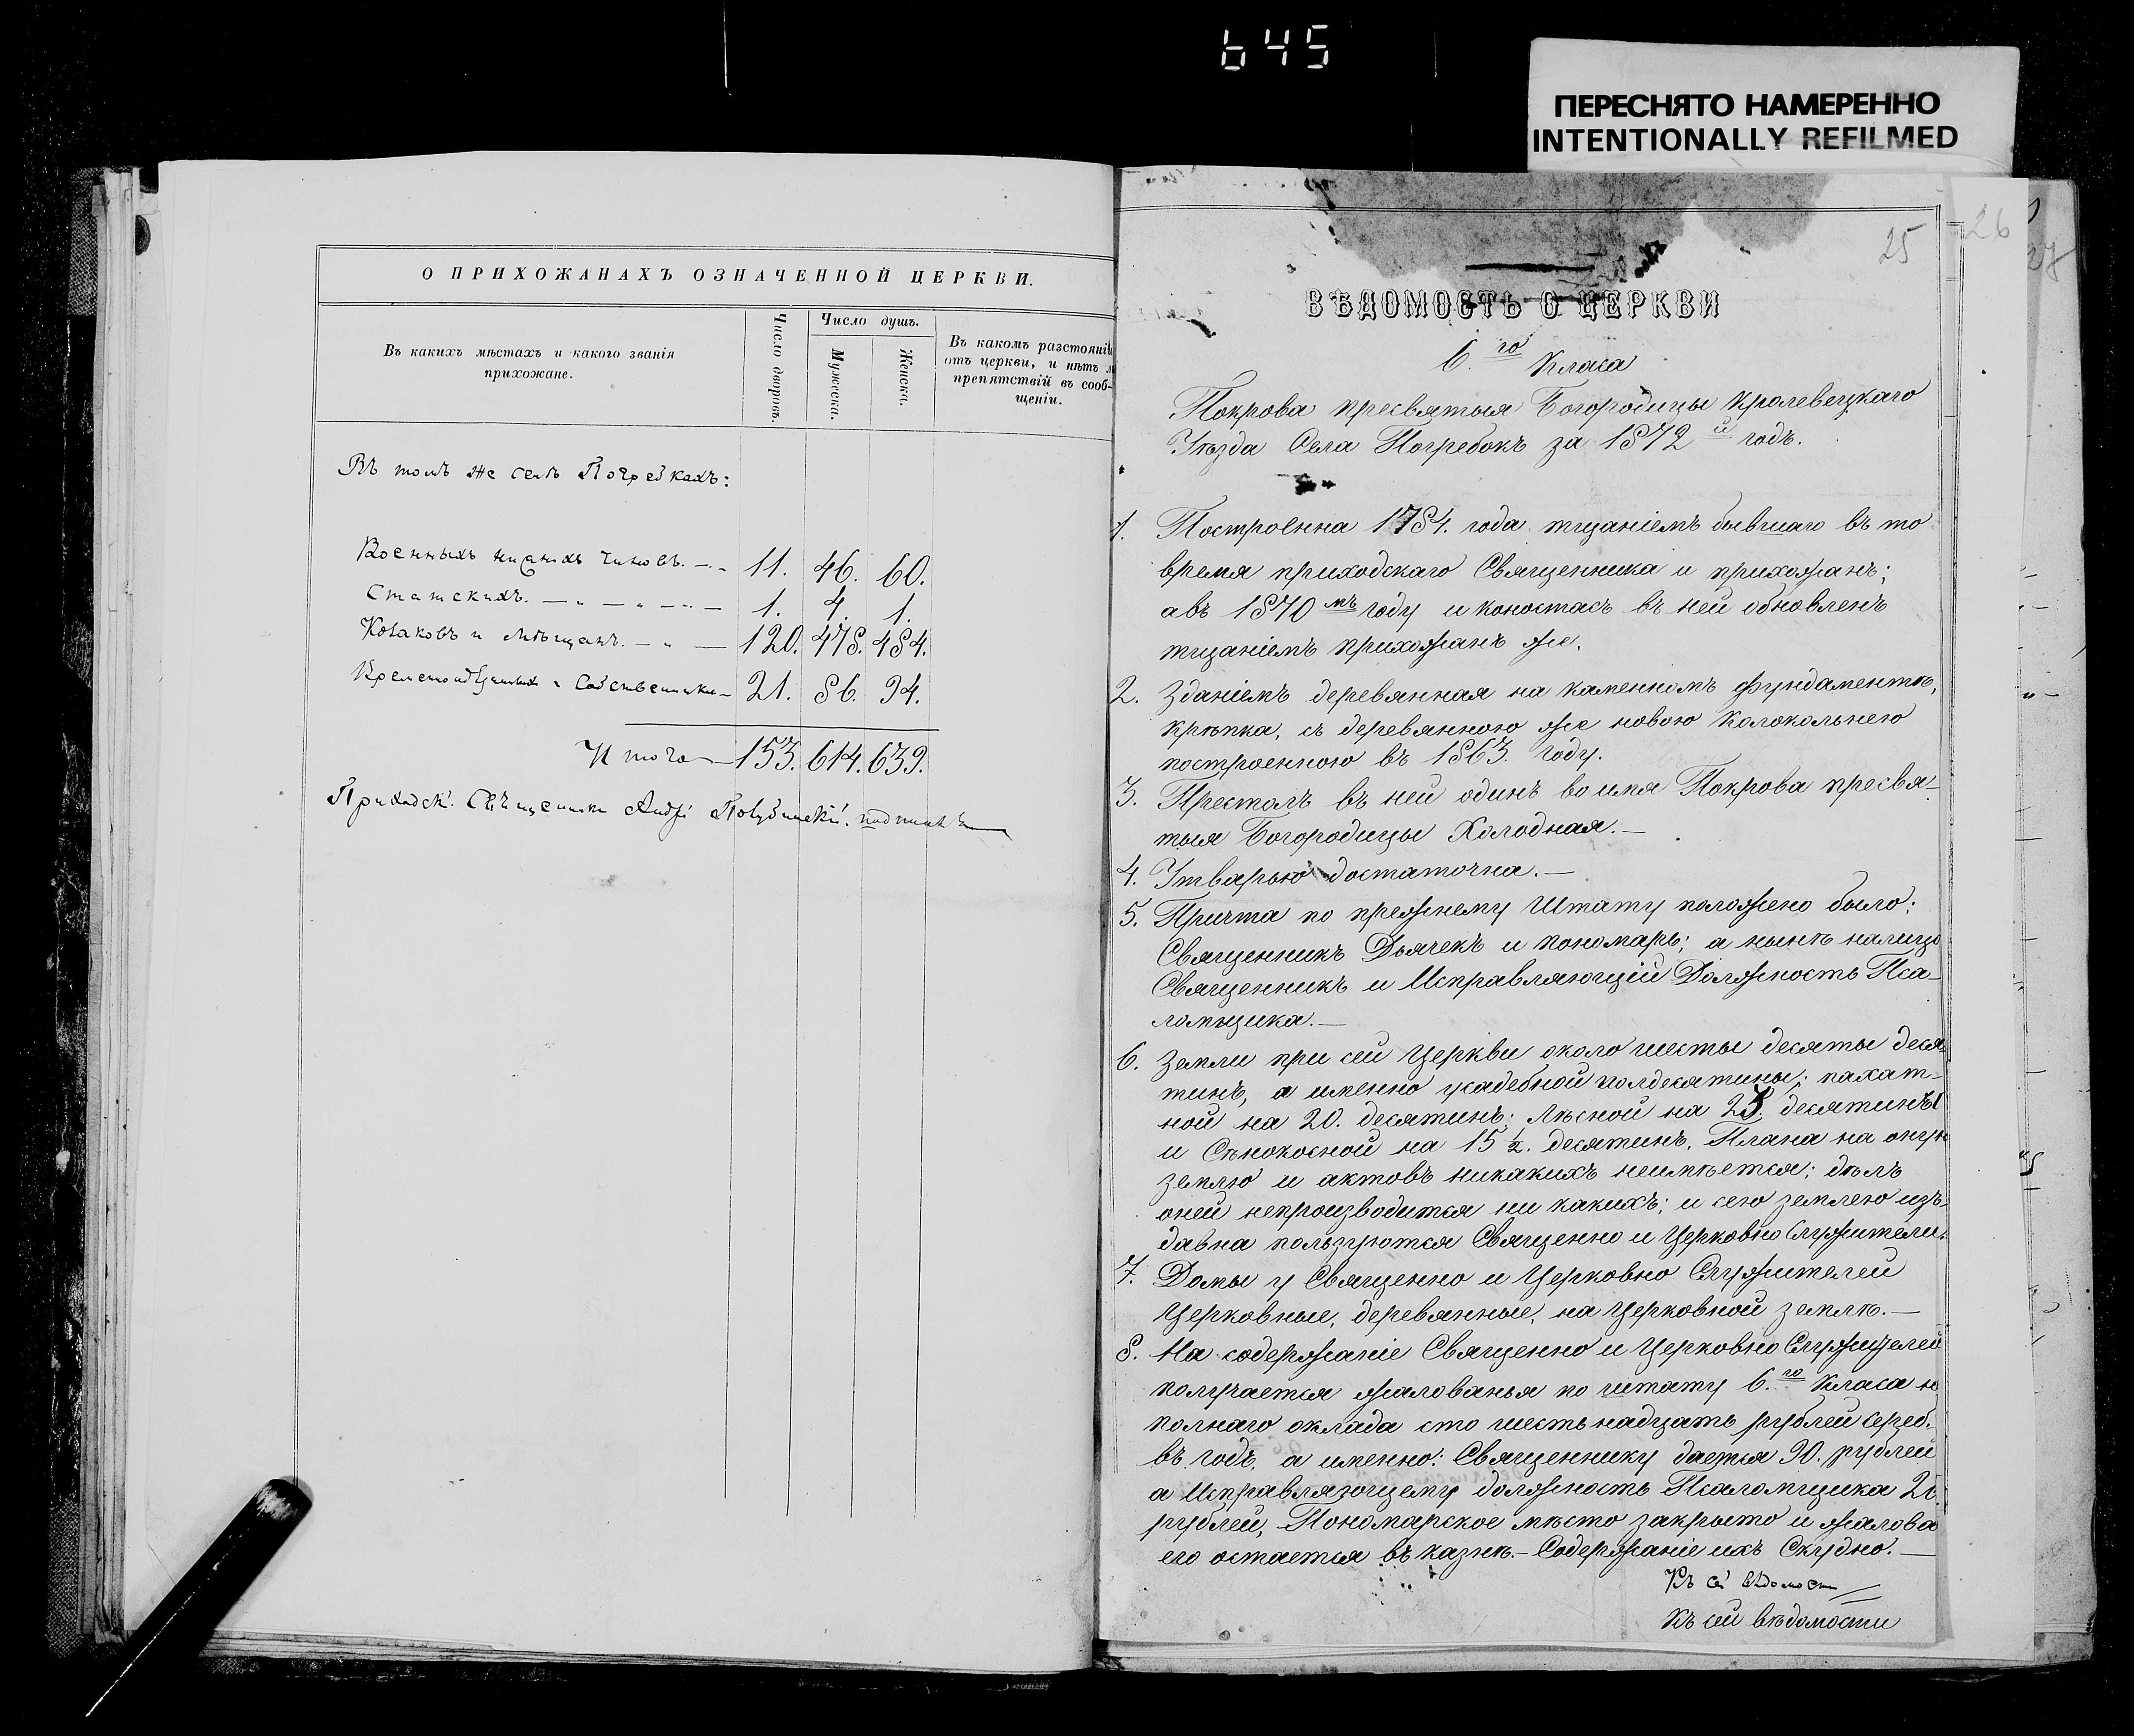 645
ПЕРЕСНЯТО НАМЕРЕННО
INTENTIONALLY REFILMED
О ПРИХОЖАНАХЪ ОЗНАЧЕННОЙ ЦЕРКВИ.
Въ какихъ мѣстахъ и какого званія
прихожане.
Число дворовъ.
Число душъ.
Мужеска.
Женска.
Въ какомъ разстояні
отъ церкви, и нѣтъ л
препятствій въ сооб-
щеніи.
Въ томъ же селѣ Погребкахъ:
Военныхъ нижнихъ чиновъ. 11. 46. 60.
Статскихъ. 1. 4. 1.
Козаковъ и мѣщанъ. 120. 478. 484.
21. 86. 94.
Итого 153. 614. 639.
Приходскій Священникъ Андрей
25
26
27
ВѢДОМОСТЬ О ЦЕРКВИ
6.го Класа
Покрова пресвятыя Богородицы Кролевецкаго
Уѣзда Села Погребокъ за 1872й годъ.
1. Построенна 1784. года тщаніемъ бывшаго въ то
время приходскаго Священника и прихожанъ;
авъ 1870мъ году иконостасъ въ ней обновленъ
тщаніемъ прихожанъ же.
2. Зданіемъ деревянная на каменномъ фундаментѣ,
крѣпка, съ деревянною же новою колокольнею
построенною въ 1863. году.
3. Престолъ въ ней одинъ во имя Покрова пресвя-
тыя Богородицы Холодная.—
4. Утварью достаточна.—
5. Причта по прежнему Штату положено было:
Священникъ Дьячекъ и пономарь; а нынѣ налицо
Священникъ и Исправляющій Должность Пса-
ломщика.—
6. Земли при сей Церкви около шесты десяты деся-
тинъ, а именно усадебной полдесятины; пахат-
ной на 20. десятинъ; Лѣсной на десятинъ
и Сѣнокосной на 15 1/2. десятинъ. Плана на оную
землю и актовъ никакихъ неимѣется; дѣлъ
оней непроизводится ни какихъ; и сею землею изъ-
давна пользуются Священно и Церковно Служители.
7. Домы у Священно и Церковно Служителей
Церковные, деревянные, на Церковной землѣ.—
8. На содержаніе Священно и Церковно Служителей
получается жалованья по штату 6.го Класа н
полнаго оклада сто шесть надцать рублей сереб.
въ годъ, а именно: Священнику дается 90. рублей
а Исправляющему должность Псаломщика 26.
рублей, Пономарское мѣсто закрыто и жалова
его остается въ казнѣ.— Содержаніе ихъ Скудно.—
Къ сей вѣдомости
Къ сей вѣдомости